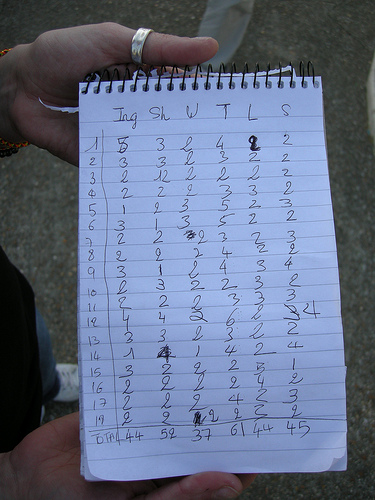 Ing Sh W T L S
1 5 3 2 4 2 2
2 3 3 2 3 2 2
3 2 12 2 2 2 2
4 2 2 2 3 3 2
5 1 2 3 5 2 3
6 3 1 3 5 2 2
7 2 2 2 3 2 3
8 2 2 2 4 2 2
9 3 1 2 4 3 4
10 2 3 2 2 3 2
11 2 2 2 3 3 3
12 4 4 2 6 2 4
13 3 3 2 3 2 2
14 1 4 1 4 2 4
15 3 2 2 2 3 1
16 2 2 2 2 4 2
17 2 2 2 4 2 3
18 2 2 2 2 2 2
44 52 37 61 44 45